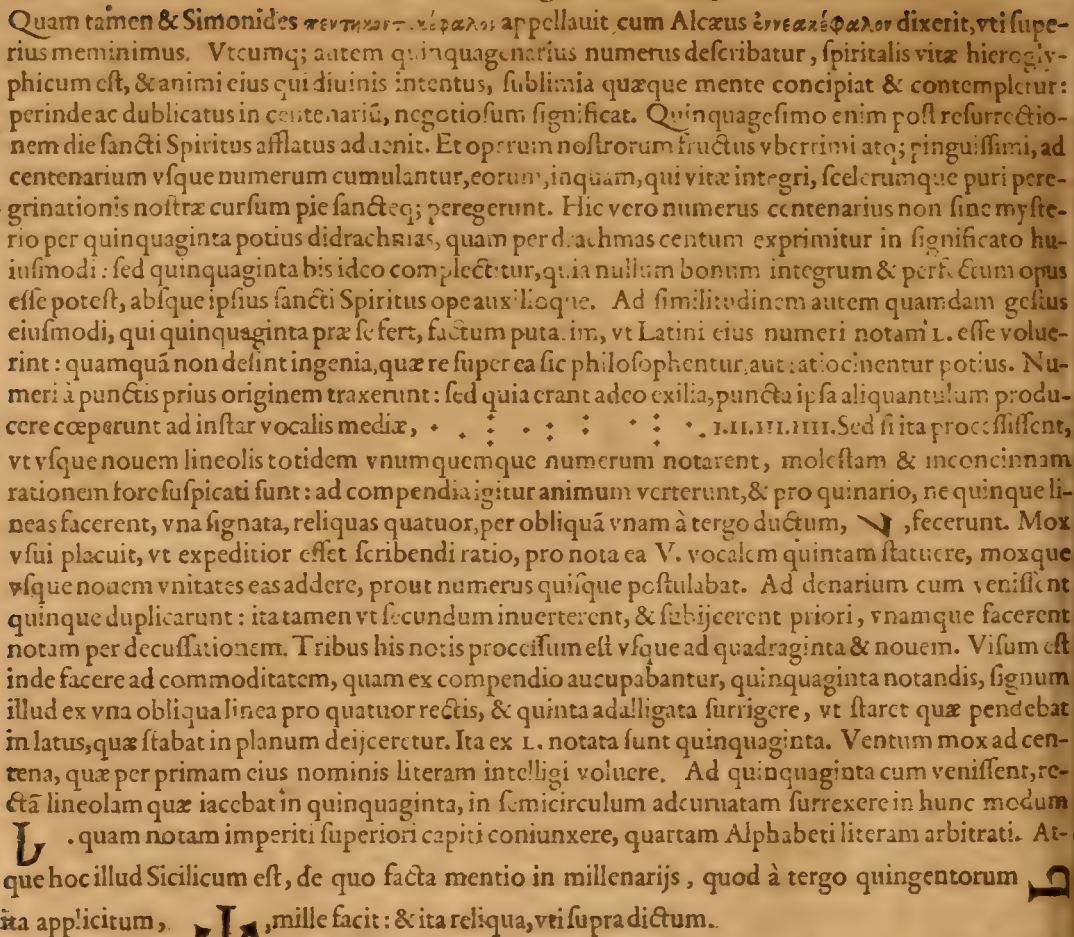 Quam tamen & Simonides appellauit cum Alcæus ἐννεακέφαλον dixerit, vti ſupe-
rius meminimus. Vtcumq; autem quinquagenarius numerus deſcribatur, ſpiritalis vitæ hierogly-
phicum eſt, & animi eius qui diuinis intentus, ſublimia quæque mente concipiat & contempletur:
perinde ac dublicatus in centenariũ, negotioſum ſignificat. Quinquageſimo enim poſt reſurrectio-
nem die ſancti Spiritus afflatus aduenit. Et operum noſtrorum fructus vberrimi atq; pinguiſſimi, ad
centenarium vſque numerum cumulantur, eorum, inquam, qui vitæ integri, ſcelerumque puri pere-
grinationis noſtræ curſum pie ſancteq; peregerunt. Hic vero numerus centenarius non ſine myſte-
rio per quinquaginta potius didrachmas, quam per drachmas centum exprimitur in ſignificato hu-
iuſmodi: ſed quinquaginta bis ideo complectitur, quia nullum bonum integrum & perfectum opus
eſſe poteſt, abſque ipſius ſancti Spiritus ope auxilioque. Ad ſimilitudinem autem quamdam geſtus
eiuſmodi, qui quinquaginta præ ſe fert, factum putarim, vt Latini eius numeri notam L. eſſe volue-
rint: quamquã non deſint ingenia, quæ re ſuper ea ſic philoſophentur, aut ratiocinentur potius. Nu-
meri à punctis prius originem traxerunt: ſed quia erant adeo exilia, puncta ipſa aliquantulum produ-
cere cœperunt ad inſtar vocalis mediæ, · . : · : · : · : · . I.II.III.IIII. Sed ſi ita proceſſiſſent,
vt vſque nouem lineolis totidem vnumquemque numerum notarent, moleſtam & inconcinnam
rationem fore ſuſpicati ſunt: ad compendia igitur animum verterunt, & pro quinario, ne quinque li-
neas facerent, vna ſignata, reliquas quatuor, per obliquã vnam à tergo ductum, , fecerunt. Mox
vſui placuit, vt expeditior eſſet ſcribendi ratio, pro nota ea V. vocalem quintam ſtatuere, moxque
vſque nouem vnitates eas addere, prout numerus quiſque poſtulabat. Ad denarium cum veniſſent
quinque duplicarunt: ita tamen vt ſecundum inuerterent, & ſubijcerent priori, vnamque facerent
notam per decuſſationem. Tribus his notis proceſſum eſt vſque ad quadraginta & nouem. Viſum eſt
inde facere ad commoditatem, quam ex compendio aucupabantur, quinquaginta notandis, ſignum
illud ex vna obliqua linea pro quatuor rectis, & quinta adalligata ſurrigere, vt ſtaret quæ pendebat
in latus, quæ ſtabat in planum deijceretur. Ita ex L. notata ſunt quinquaginta. Ventum mox ad cen-
tena, quæ per primam eius nominis literam intelligi voluere. Ad quinquaginta cum veniſſent, re-
ctã lineolam quæ iacebat in quinquaginta, in ſemicirculum adcuruatam ſurrexere in hunc modum
. quam notam imperiti ſuperiori capiti coniunxere, quartam Alphabeti literam arbitrati. At-
que hoc illud Sicilicum eſt, de quo facta mentio in millenarijs, quod à tergo quingentorum
ita applicitum, , mille facit: & ita reliqua, vti ſupra dictum.